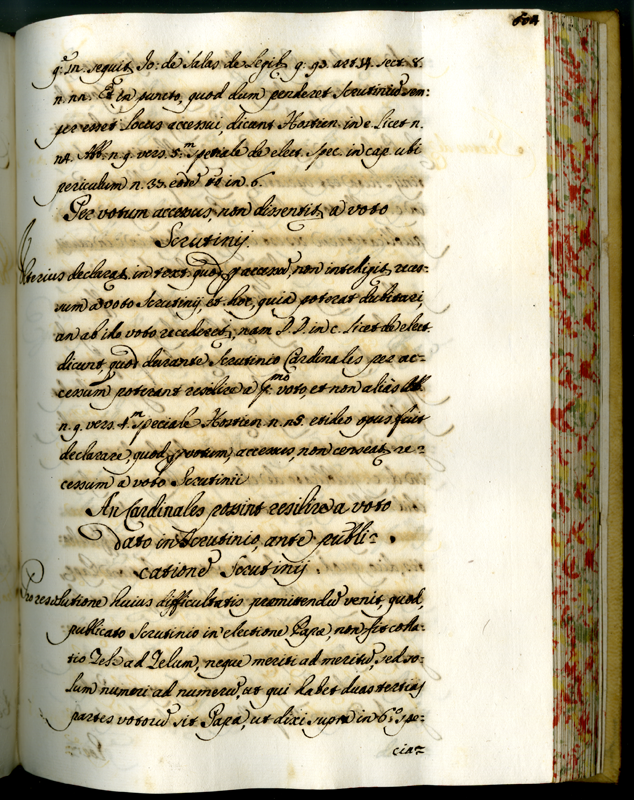 604
q. In sequit Io: de Salas de legib q. 93. art. 14. sect. 8.
n. nn. Et in puncto, quod dum penderet Scrutiniū sem-
per esset locus accessui, dicunt Hostien. in c. licet n.
n4. Abb. n. 9. vers. 5.m speciale de elect. Spec. in cap. ubi
periculum n. 33. eod tt in 6.
Per votum accessus, non dissentit a voto
Scrutinij.
Ulterius declarat in text. quod p accessū, non intelligit reces-
sum a voto Scrutinij, et hoc, quia poterat dubitari,
an ab illo voto recederet, nam DD. in c. licet de elect.
dicunt, quod durante Scrutinio Cardinales per ac-
cessum poterant resilire a p:mo voto, et non alias
n. 9. vers. 4.m speciale Hostien. n. n5. et ideo opus fuit
declarare, quod p votum, accessus, non censeat re-
cessum a voto Scrutinii
An Cardinales possint resilire a voto
dato in Scrutinio, ante publi-
cationē Scrutinij.
Pro resolutione huius difficultatis premittendū venit, quod,
publicato Scrutinio in electione Papa, non fit colla-
tio Zeli ad Zelum, neque meriti ad meritū, sed so-
lum numeri ad numerū, ut qui habet duas tertias
partes votorū sit Papa, ut dixi supra in 6.o spe-
cia-